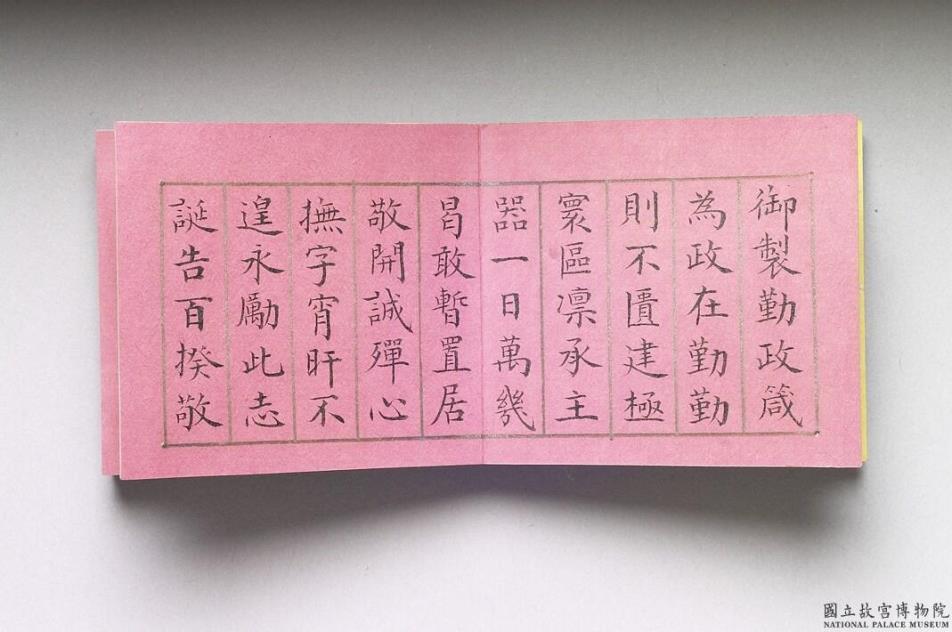 御製勤政箴
為政在勤勤
則不匱建極
寰區凛承主
器一日萬幾
曷敢暫置居
敬開誠殫心
撫字宵旰不
遑永勵此志
誕告百揆敬
國立故宮博物院
NATIONAL PALACE MUSEUM